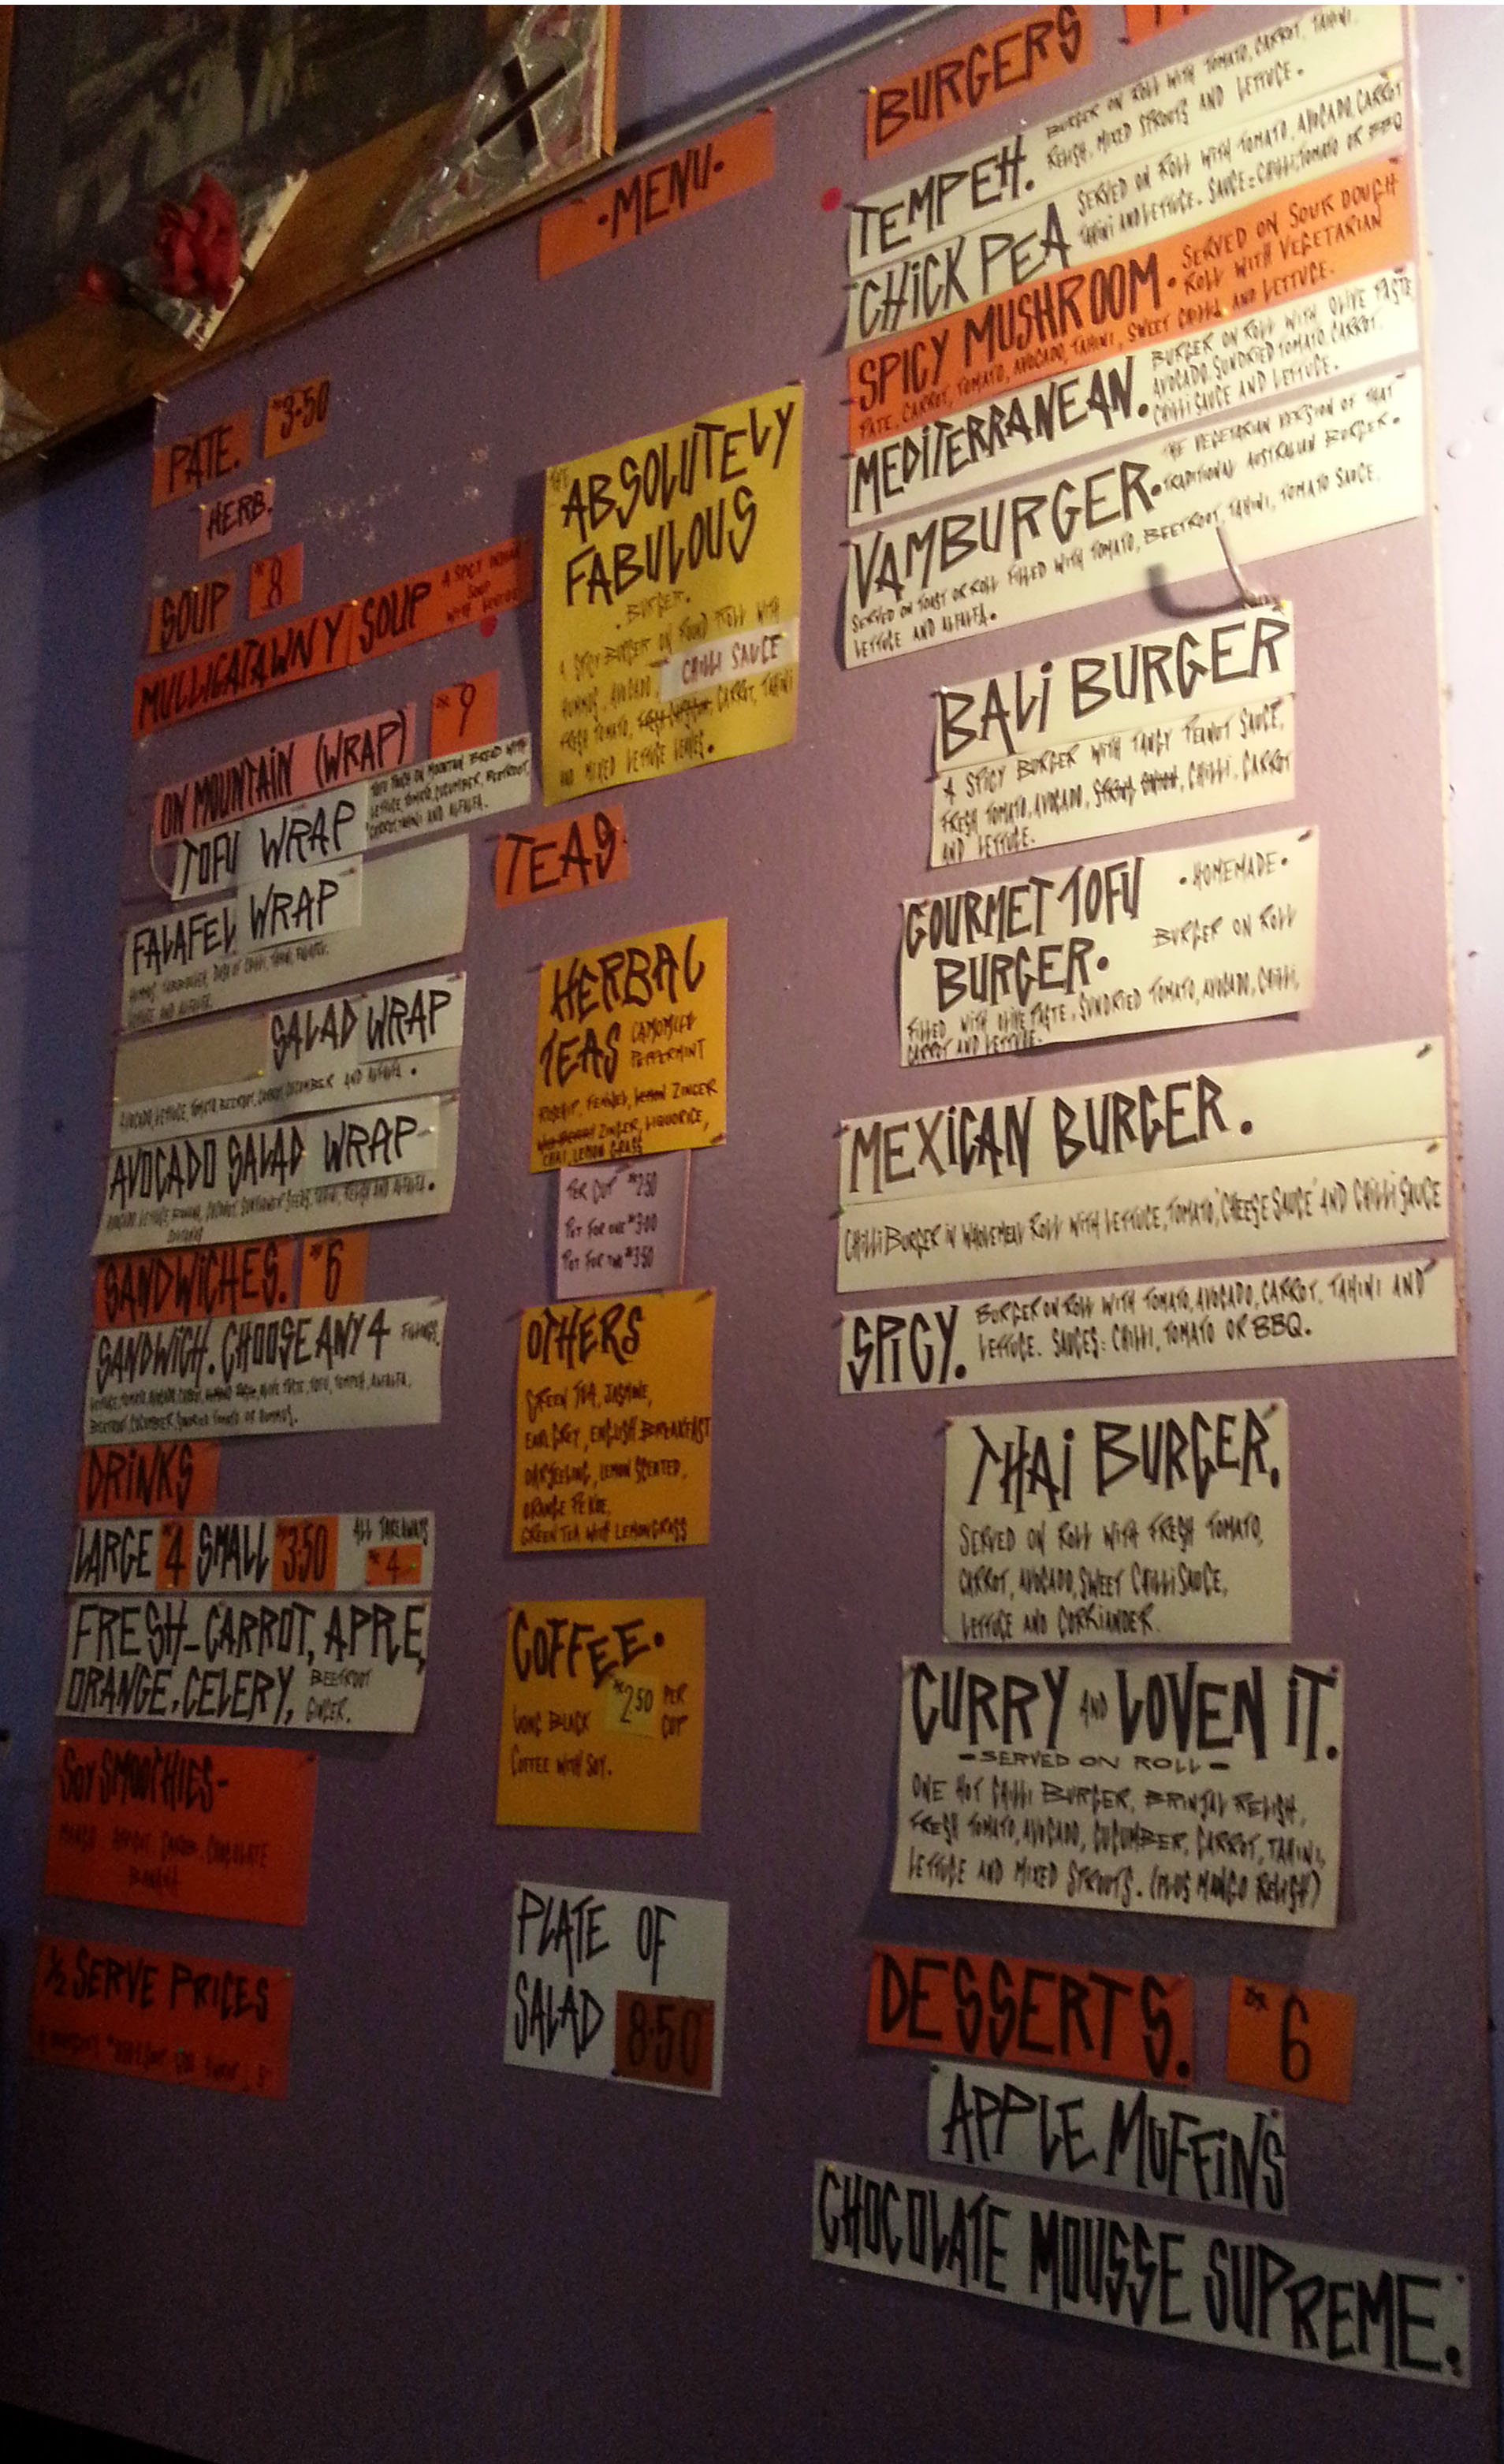 ·MENU·
PATE.
$3·50
HERB.
SOUP
$8
MULLIGATAWNY SOUP
A SPICY INDIAN
SOUP
ON MOUNTAIN (WRAP)
$9
TOFU WRAP
TOFU PATTY ON MOUNTAIN BREAD WITH
LETTUCE, TOMATO, CUCUMBER, BEETROOT,
CARROT, TAHINI AND ALFALFA.
FALAFEL WRAP
HUMMUS, TABBOULEH, DASH OF CHILLI, TAHINI,
LETTUCE AND ALFALFA.
SALAD WRAP
AVOCADO, LETTUCE, TOMATO, BEETROOT, CARROT, CUCUMBER AND ALFALFA.
AVOCADO SALAD WRAP
AVOCADO, LETTUCE, SUNFLOWER SEEDS, TAHINI, RELISH AND ALFALFA.
SANDWICHES.
$6
SANDWICH. CHOOSE ANY 4 FILLINGS.
LETTUCE, TOMATO, OLIVE PASTE, TOFU, TEMPEH, ALFALFA,
BEETROOT, CUCUMBER, SUNDRIED TOMATO OR HUMMUS.
DRINKS
LARGE $4 SMALL $3·50
ALL TAKEAWAYS
$4
FRESH-CARROT, APPLE,
ORANGE, CELERY, BEETROOT
GINGER.
SOY SMOOTHIES-
MANGO CAROB CHOCOLATE
BANANA
1/2 SERVE PRICES
THE ABSOLUTELY
FABULOUS
·BURGER·
A SPICY BURGER ON ROUND ROLL WITH
HUMMUS, AVOCADO, CHILLI SAUCE
FRESH TOMATO, CARROT, TAHINI
AND MIXED LETTUCE LEAVES.
TEAS
HERBAL
TEAS CAMOMILE
PEPPERMINT
ROSEHIP, FENNEL, LEMON ZINGER
ZINGER, LIQUORICE,
CHAI, LEMON GRASS
PER CUP $2·50
POT FOR ONE $3·00
POT FOR TWO $3·50
OTHERS
GREEN TEA, JASMINE,
EARL GREY, ENGLISH BREAKFAST
DARJEELING, LEMON SCENTED,
ORANGE PEKOE,
GREEN TEA WITH LEMONGRASS
COFFEE.
LONG BLACK $2·50 PER
CUP
COFFEE WITH SOY.
PLATE OF
SALAD 8·50
BURGERS
TEMPEH. BURGER ON ROLL WITH TOMATO, CARROT, TAHINI,
RELISH, MIXED SPROUTS AND LETTUCE.
CHICK PEA SERVED ON ROLL WITH TOMATO, AVOCADO, CARROT
TAHINI AND LETTUCE. SAUCE=CHILLI, TOMATO OR BBQ
SPICY MUSHROOM. SERVED ON SOUR DOUGH
ROLL WITH VEGETARIAN
PATE, CARROT, TOMATO, AVOCADO, TAHINI, SWEET CHILLI, AND LETTUCE.
MEDITERRANEAN. BURGER ON ROLL WITH OLIVE PASTE
AVOCADO, SUNDRIED TOMATO, CARROT,
CHILLI SAUCE AND LETTUCE.
VAMBURGER. THE VEGETARIAN VERSION OF THAT
TRADITIONAL AUSTRALIAN BURGER.
SERVED ON TOAST OR ROLL FILLED WITH TOMATO, BEETROOT, TAHINI, TOMATO SAUCE,
LETTUCE AND ALFALFA.
BALI BURGER
A SPICY BURGER WITH TANGY PEANUT SAUCE,
FRESH TOMATO, AVOCADO, SPRING ONION, CHILLI, CARROT
AND LETTUCE.
GOURMET TOFU
BURGER.
·HOMEMADE·
BURGER ON ROLL
FILLED WITH OLIVE PASTE, SUNDRIED TOMATO, AVOCADO, CHILLI,
CARROT AND LETTUCE.
MEXICAN BURGER.
CHILLI BURGER IN WHOLEMEAL ROLL WITH LETTUCE, TOMATO, 'CHEESE SAUCE' AND CHILLI SAUCE
SPICY. BURGER ON ROLL WITH TOMATO, AVOCADO, CARROT, TAHINI AND
LETTUCE. SAUCES: CHILLI, TOMATO OR BBQ.
THAI BURGER.
SERVED ON ROLL WITH FRESH TOMATO,
CARROT, AVOCADO, SWEET CHILLI SAUCE,
LETTUCE AND CORRIANDER.
CURRY AND LOVEN IT.
-SERVED ON ROLL-
ONE HOT CHILLI BURGER, BRINJAL RELISH,
FRESH TOMATO, AVOCADO, CUCUMBER, CARROT, TAHINI,
LETTUCE AND MIXED SPROUTS. (PLUS MANGO RELISH)
DESSERTS.
$6
APPLE MUFFINS
CHOCOLATE MOUSSE SUPREME.